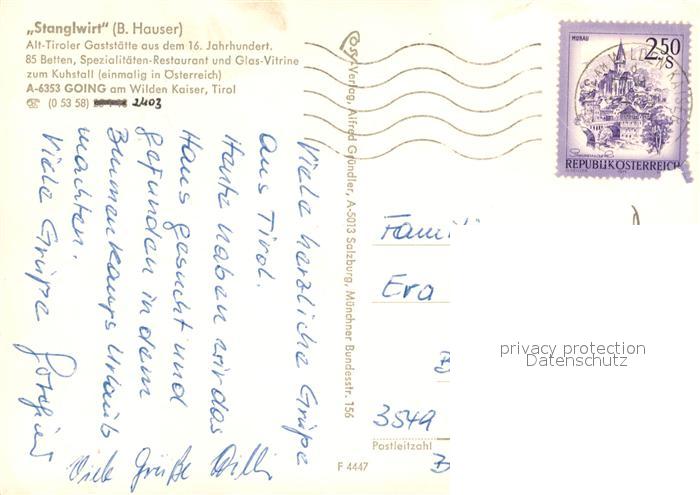 „Stanglwirt“ (B. Hauser)
Alt-Tiroler Gaststätte aus dem 16. Jahrhundert.
85 Betten, Spezialitäten-Restaurant und Glas-Vitrine
zum Kuhstall (einmalig in Österreich)
A-6353 GOING am Wilden Kaiser, Tirol
☎ (0 53 58) 2403
Viele herzliche Grüße
aus Tirol.
Heute haben wir das
Haus gesucht und
gefunden in dem
machten.
Viele Grüße
Viele Grüße Willi
Cosy-Verlag, Alfred Gründler, A-5013 Salzburg, Münchner Bundesstr. 156
F 4447
MURAU
2.50
S
REPUBLIK ÖSTERREICH
AM WILDEN KAISER
Eva
3549
Postleitzahl
privacy protection
Datenschutz